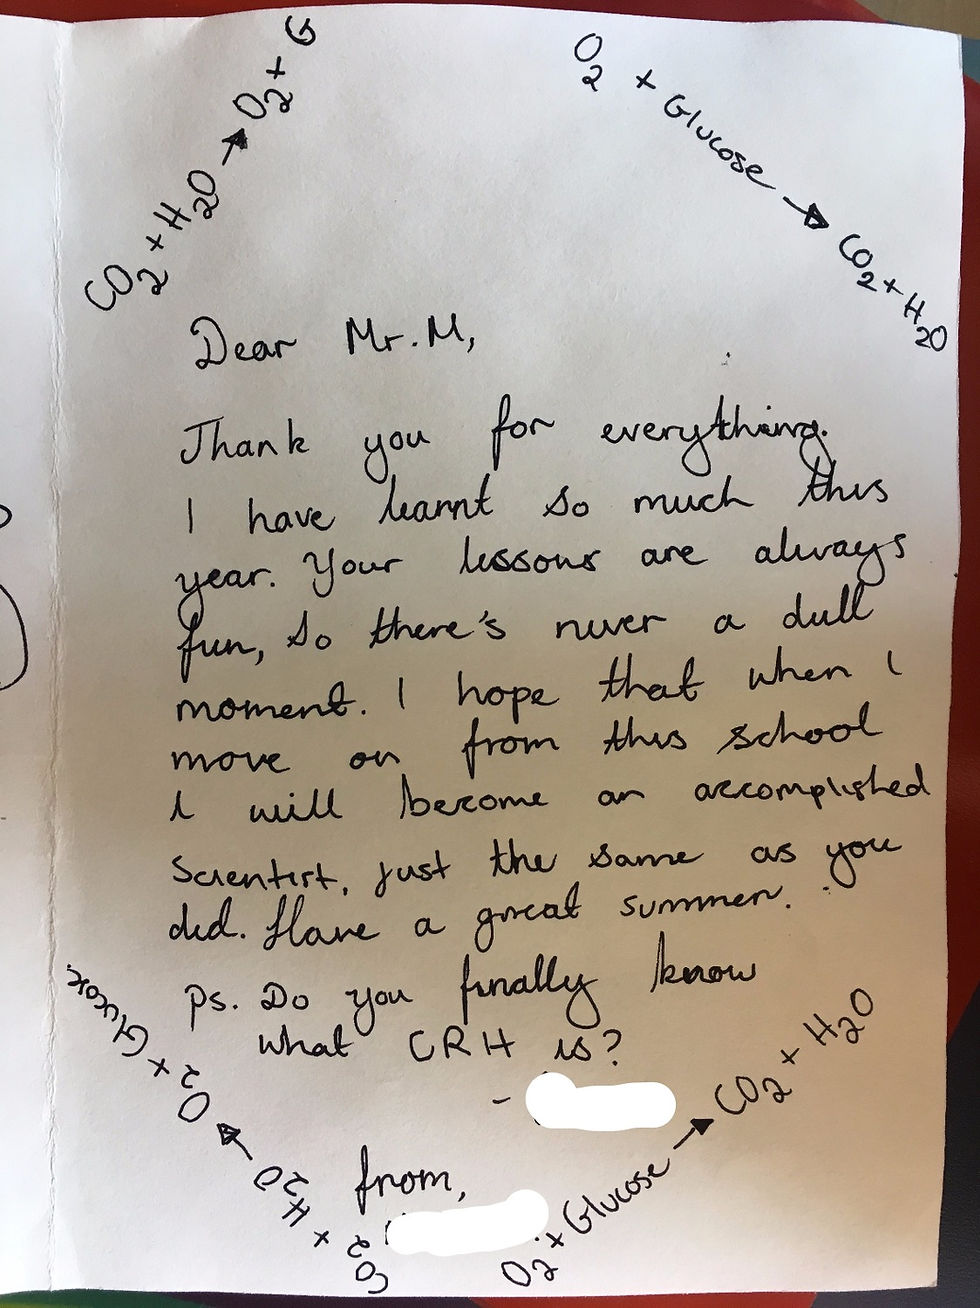 CO2 + H2O → O2 + G
O2 + Glucose → CO2 + H2O
Dear Mr. M,
Thank you for everything.
I have learnt so much this
year. Your lessons are always
fun, so there's never a dull
moment. I hope that when I
move on from this school
I will become an accomplished
scientist, just the same as you
did. Have a great summer.
Ps. Do you finally know
what CRH is?
-
from,
CO2 + H2O → O2 + Glucose.
O2 + Glucose → CO2 + H2O